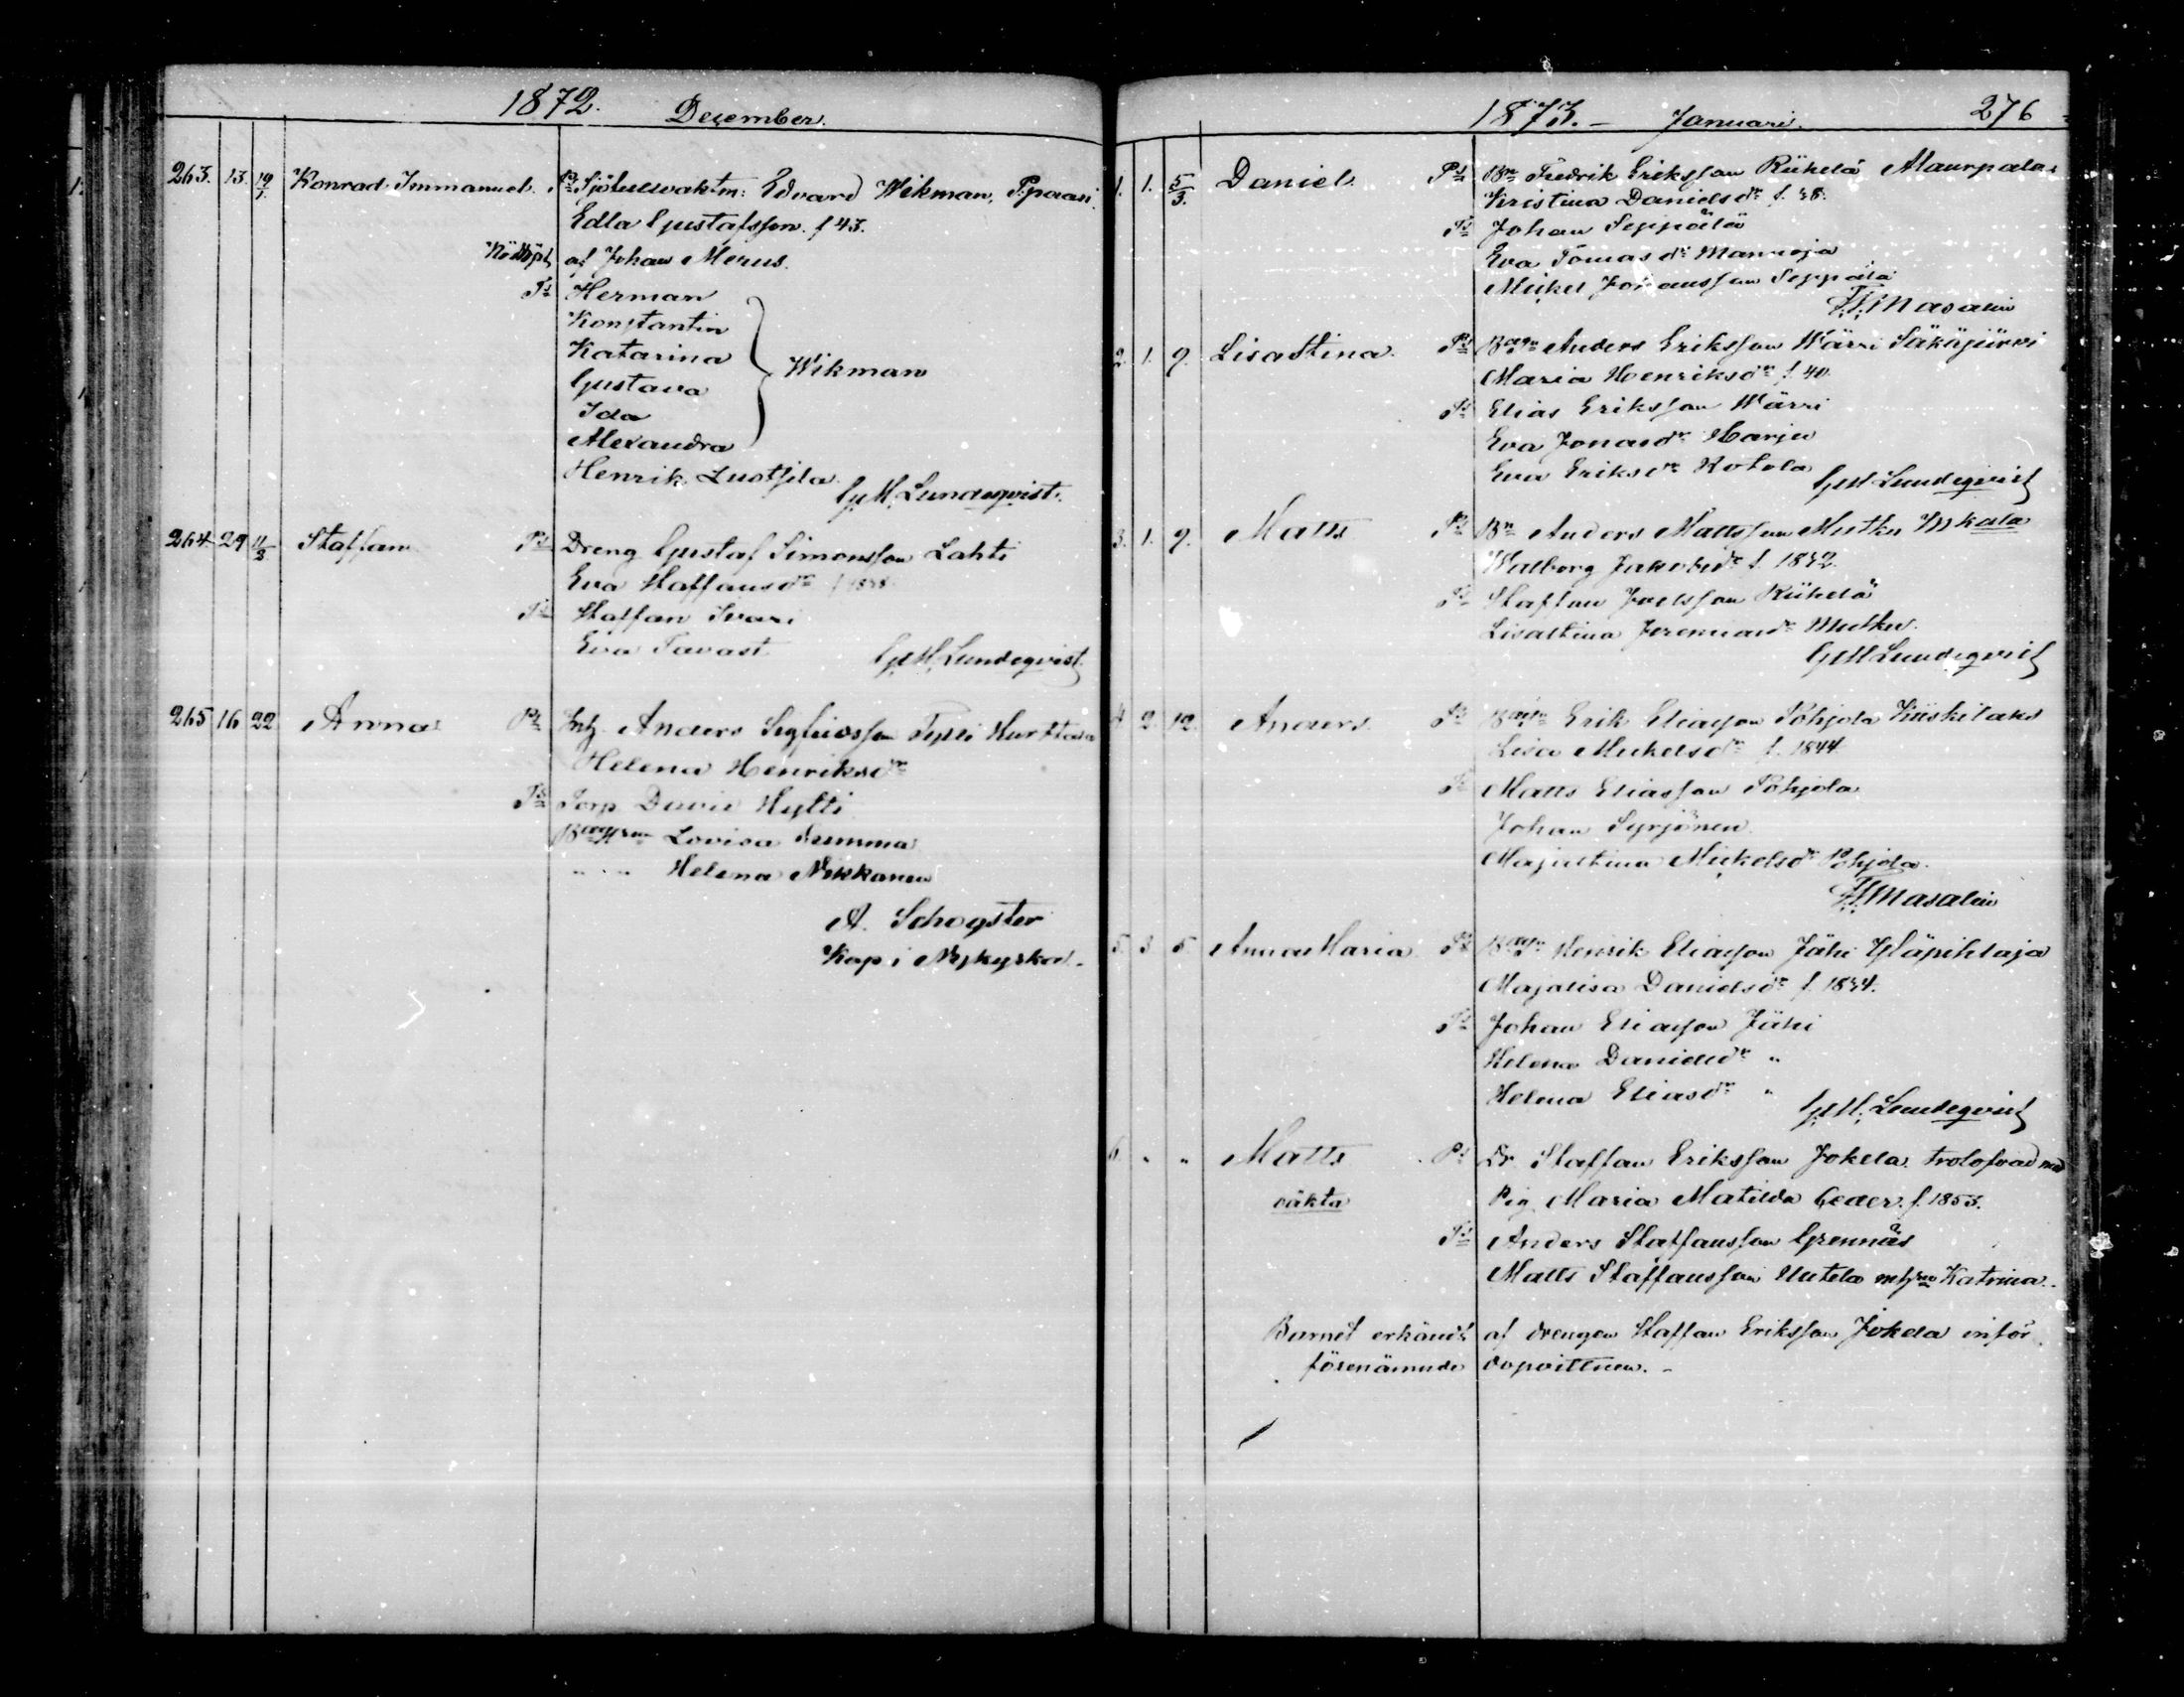 1872. December.
263. 13. 19/1 Konrad Immanuel. Ps Sjötullvaktm: Edvard Wikman, Ppaasi.
Edla Gustafsson. f 43.
Nöddöpt af Johan Merus.
Ts Herman
Konstantin
Katarina
Gustava
Wikman
Ida
Alexandra
Henrik
G.M. Lundeqvist.
264 29 11/3 Staffan Ps Dreng Gustaf Simonsson Lahti
Eva Staffansdr f 1838
Ts Staffan Ivari
Eva Tavast
G.M. Lundeqvist
265 16 22 Anna Ps Inh. Anders Sigfridsson
Helena Henriksdr
Ts Torp David Hytti
Lovisa Summa
" " Helena Nikkanen
A. Schogster
Kap i Nykyrka.
1873. – Januari. 276
1. 1. 5/3. Daniel Ps Bn Fredrik Eriksson Riihelä Maurpala
Kristina Danielsdr f. 38.
Ts Johan Seppälä
Eva Tomasdr Mannoja
Mickel Johansson Seppälä
Masalin
2. 1. 9. Lisa Stina Ps Anders Eriksson Wärri Säkäjärvi
Maria Henriksdr f 40.
Ts Elias Eriksson Wärri
Eva Jonasdr Harju
Eva Eriksdr Kotola
GM Lundeqvist
3. 1. 9. Matts Ps Bn Anders Mattsson Mutku
Walborg Jakobsdr f. 1832.
Ts Staffan Joelsson Riihelä
Lisastina Jeremiasdr Mutku.
GM Lundeqvist
4 2. 12. Anders Ps Erik Eliasson Pohjola Kiiskilaks
Lisa Mickelsdr f. 1844.
Ts Matts Eliasson Pohjola
Johan Syrjönen
Majastina Mickelsdr Pohjola.
Masalin
5. 3 5 Anna Maria Ps Henrik Eliasson Jähi Yläpihlaja
Majalisa Danielsdr f. 1834.
Ts Johan Eliasson Jähi
Helena Danielsdr "
Helena Eliasdr "
G.M. Lundeqvist
6. " " Matts Ps Dr Staffan Eriksson Jokela trolofvad med
oäkta Pig. Maria Matilda Ceder. f. 1853.
Ts Anders Staffansson Grennäs
Matts Staffansson Uutela m hru Katrina.
Barnet erkändt af drengen Staffan Eriksson Jokela inför
förenämnde dopvittnen. –